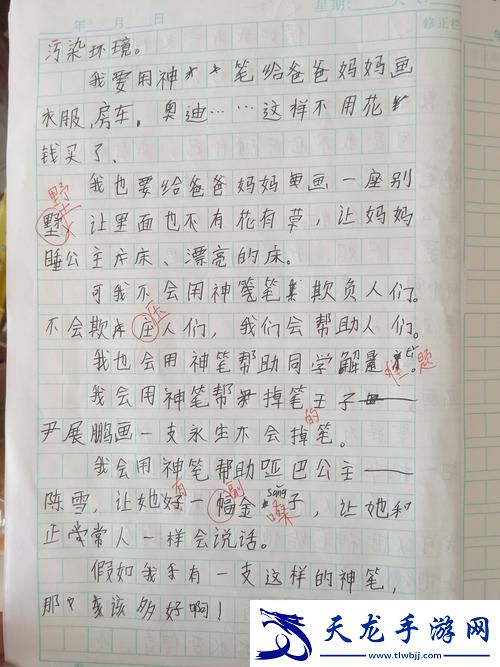 年 月 日 星期:
修正栏
污染环境。
我要用神笔给爸爸妈妈画
衣服、房车，奥迪……这样不用花
钱买了、
野
我也要给爸爸妈妈画一座别
墅，让里面也不有花有草，让妈妈
睡公主床、漂亮的床。
可我不会用神笔欺负人们。
压
不会欺庄人们，我们会帮助人们。
我也会用神笔帮助同学解难题。
我会用神笔帮掉笔王子——
的
尹展鹏画一支永生不会掉笔。
我会用神笔帮助哑巴公主——
有 副 sǎng
陈雪，让她好一幅金嗓子，让她和
正常人一样会说话。
假如我有一支这样的神笔，
那该多好啊！
天龙手游网
www.tlwbjj.com